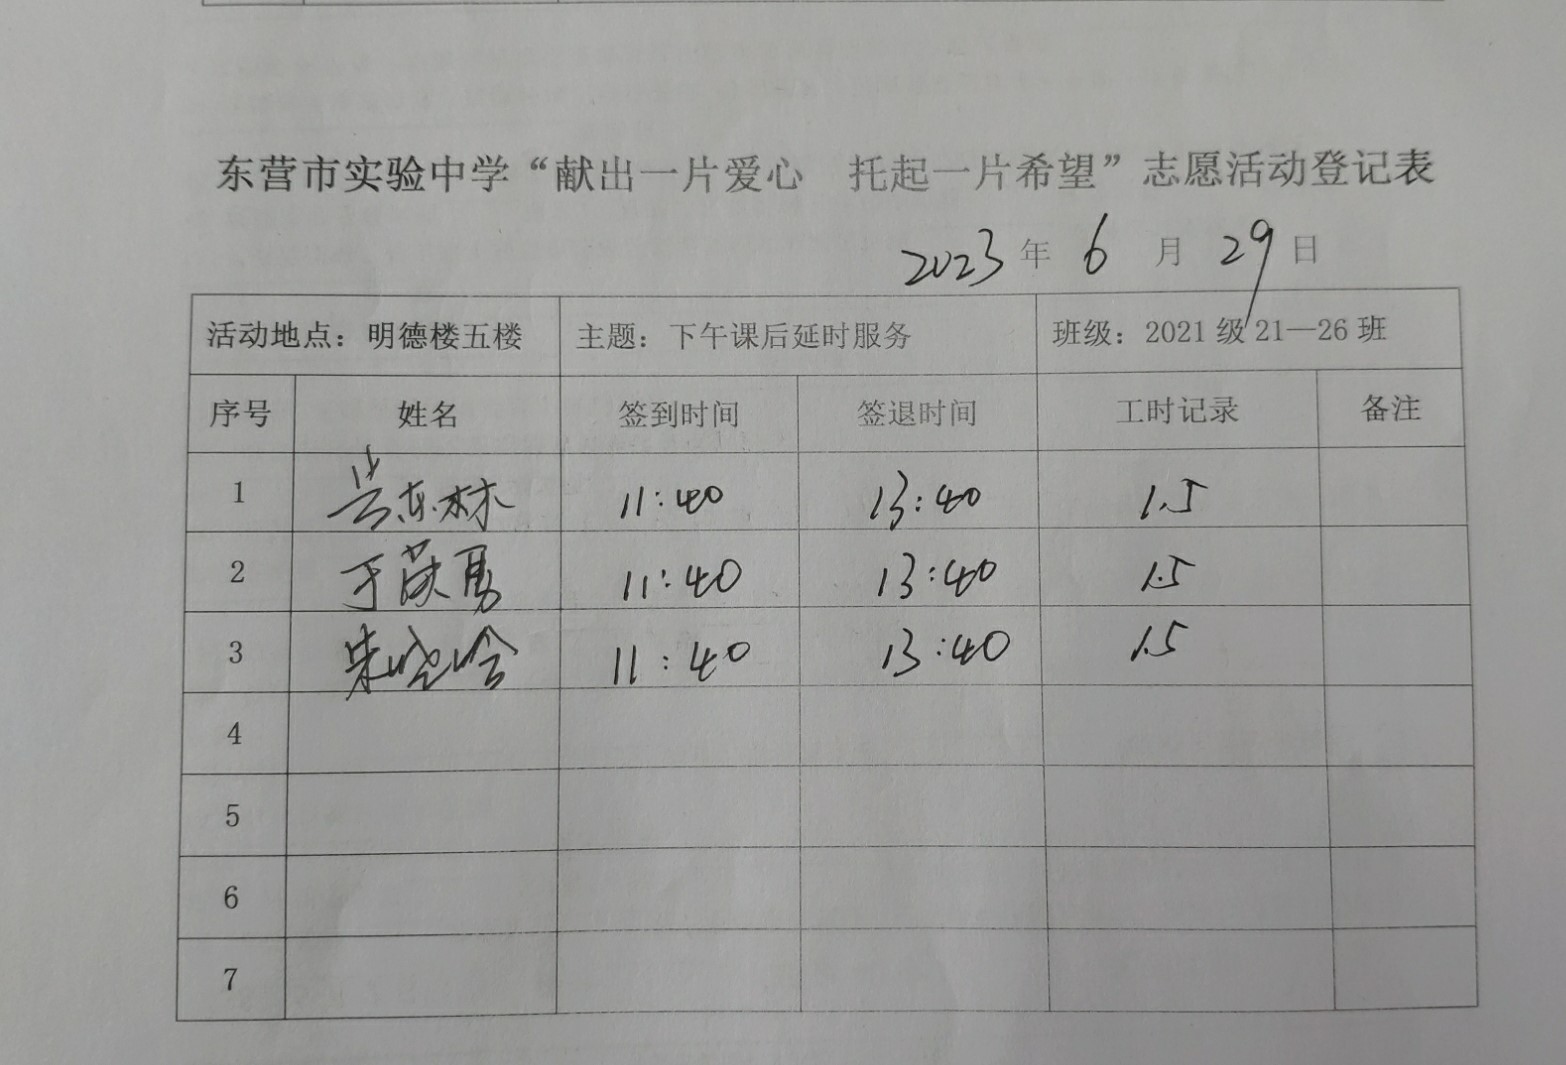 东营市实验中学“献出一片爱心 托起一片希望”志愿活动登记表
2023年 6 月 29 日
活动地点：明德楼五楼 主题：下午课后延时服务 班级：2021 级 21—26 班
序号 姓名 签到时间 签退时间 工时记录 备注
1 东林 11:40 13:40 1.5
2 于 勇 11:40 13:40 1.5
3 朱晓 11:40 13:40 1.5
4
5
6
7